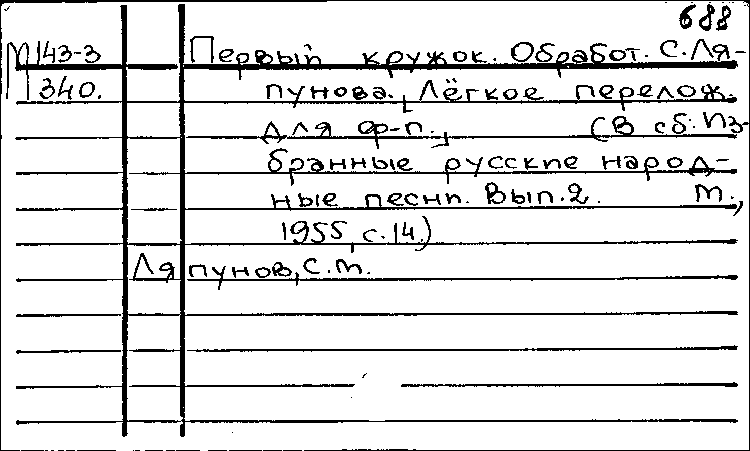 688
М 143-3 Первый кружок. Обработ. С. Ля-
340. пунова. [Лёгкое перелож.
для ф-п.] (В сб: Из-
бранные русские народ-
ные песни. Вып. 2. М.,
1955, с. 14.)
Ляпунов, С. М.